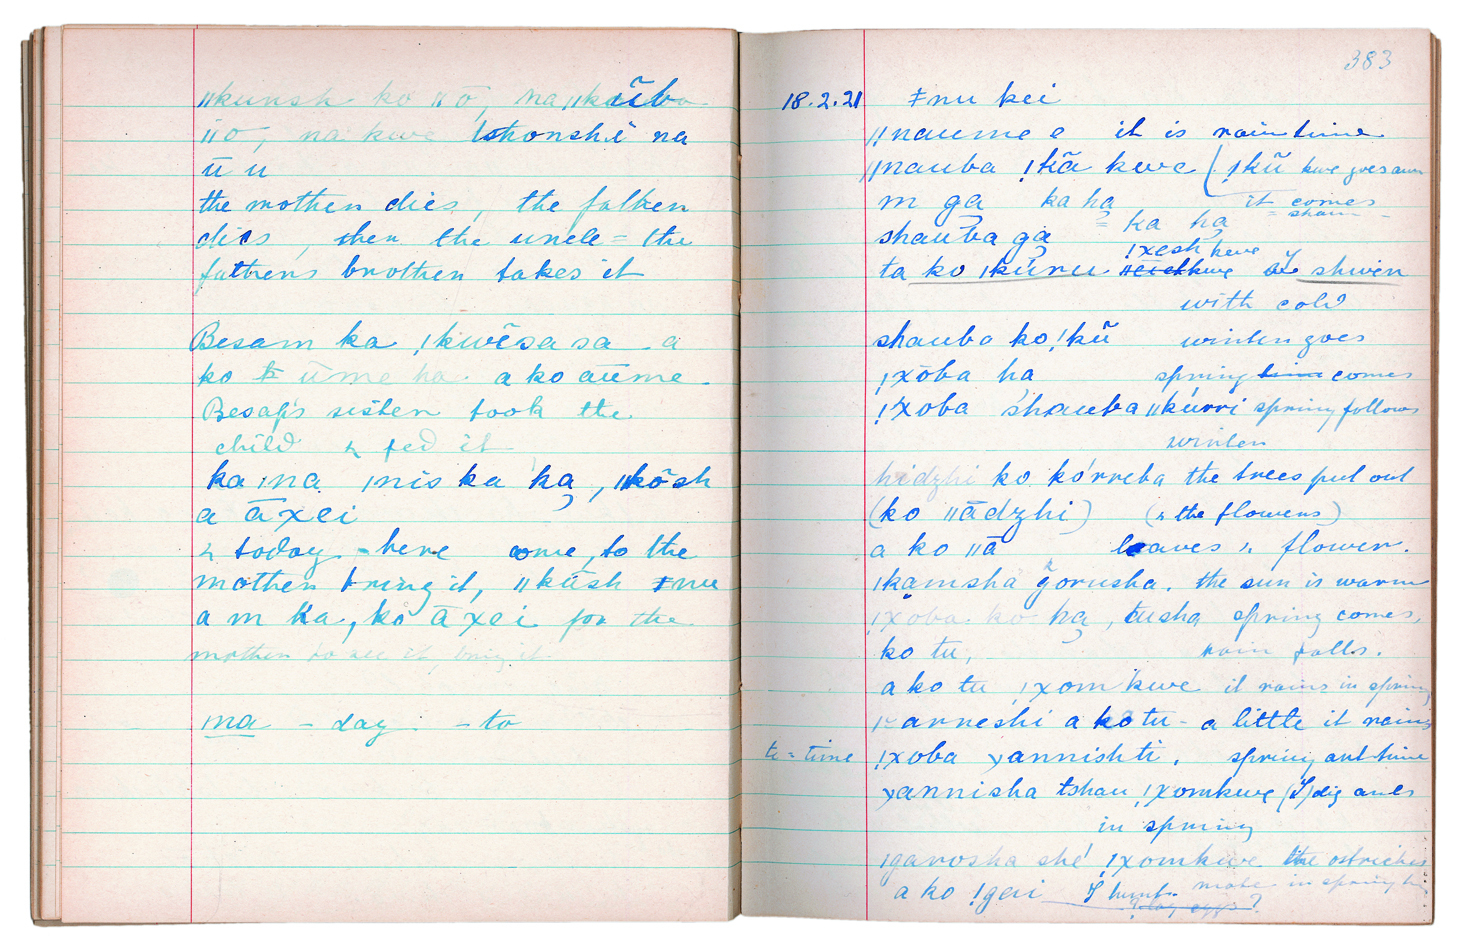 ǁkunsh ko ǁō, na ǁkūba
ǁo, na kwe ǀshonshi na
ū u
the mother dies, the father
dies, then the uncle = the
father's brother takes it
Besam ka ǃkwēsa sa a
ko ūme ha a ko aūme
Besa's sister took the
child & fed it
ka ǀna ǀnis ka ka, ǁkōsh
a āxei
& today - here come, to the
mother bring it, ǁkūsh ǂnu
a m ka, ko āxei for the
mother to see it, bring it
ǀna - day - to
383
18.2.21 ǂnu kei
ǁnaume e it is raintime
ǁnauba ǃkã kwe (ǃkũ kwe goes away
m ga ka ha it comes
shauba ga = ka ha
ta ko ǀkūru ǃxesh kwe I shiver
with cold
shauba ko ǃkũ winter goes
ǃxōba ha spring time comes
ǃxoba shauba ǁkurri spring follows
winter
hidzhi ko korreba the trees put out
(ko ǁādzhi) (& the flowers)
a ko ǁā leaves & flower.
ǀkamsha gorusha. the sun is warm
ǃxoba ko ha, tusha spring comes,
ko tu, rain falls.
a ko tu ǃxom kwe it rains in spring
arreshi a ko tu - a little it rains
ti = time ǃxoba yannishti. spring ant-time
yannisha tshau ǃxomkwe (I) dig ants
in spring
ǀgarosha she ǃxomkwe the ostriches
a ko ǃgai I hunt mate in spring
lay eggs?